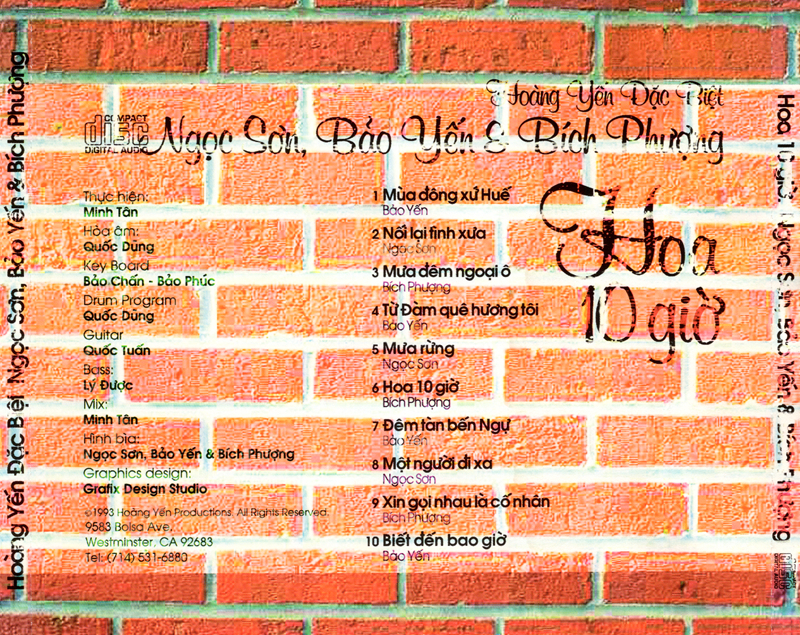 Hoàng Yến Đặc Biệt
COMPACT
disc
DIGITAL AUDIO
Ngọc Sơn, Bảo Yến & Bích Phượng
Hoa
10 giờ
Thực hiện:
Minh Tân
Hòa âm:
Quốc Dũng
Key Board
Bảo Chấn - Bảo Phúc
Drum Program
Quốc Dũng
Guitar
Quốc Tuấn
Bass:
Lý Được
Mix:
Minh Tân
Hình bìa:
Ngọc Sơn, Bảo Yến & Bích Phượng
Graphics design:
Grafix Design Studio
©1993 Hoàng Yến Productions. All Rights Reserved.
9583 Bolsa Ave,
Westminster, CA 92683
Tel: (714) 531-6880
1 Mùa đông xứ Huế
Bảo Yến
2 Nối lại tình xưa
Ngọc Sơn
3 Mưa đêm ngoại ô
Bích Phượng
4 Từ Đàm quê hương tôi
Bảo Yến
5 Mưa rừng
Ngọc Sơn
6 Hoa 10 giờ
Bích Phượng
7 Đêm tàn bến Ngự
Bảo Yến
8 Một người đi xa
Ngọc Sơn
9 Xin gọi nhau là cố nhân
Bích Phượng
10 Biết đến bao giờ
Bảo Yến
Hoàng Yến Đặc Biệt Ngọc Sơn, Bảo Yến & Bích Phượng
Hoa 10 giờ Ngọc Sơn, Bảo Yến & Bích Phượng